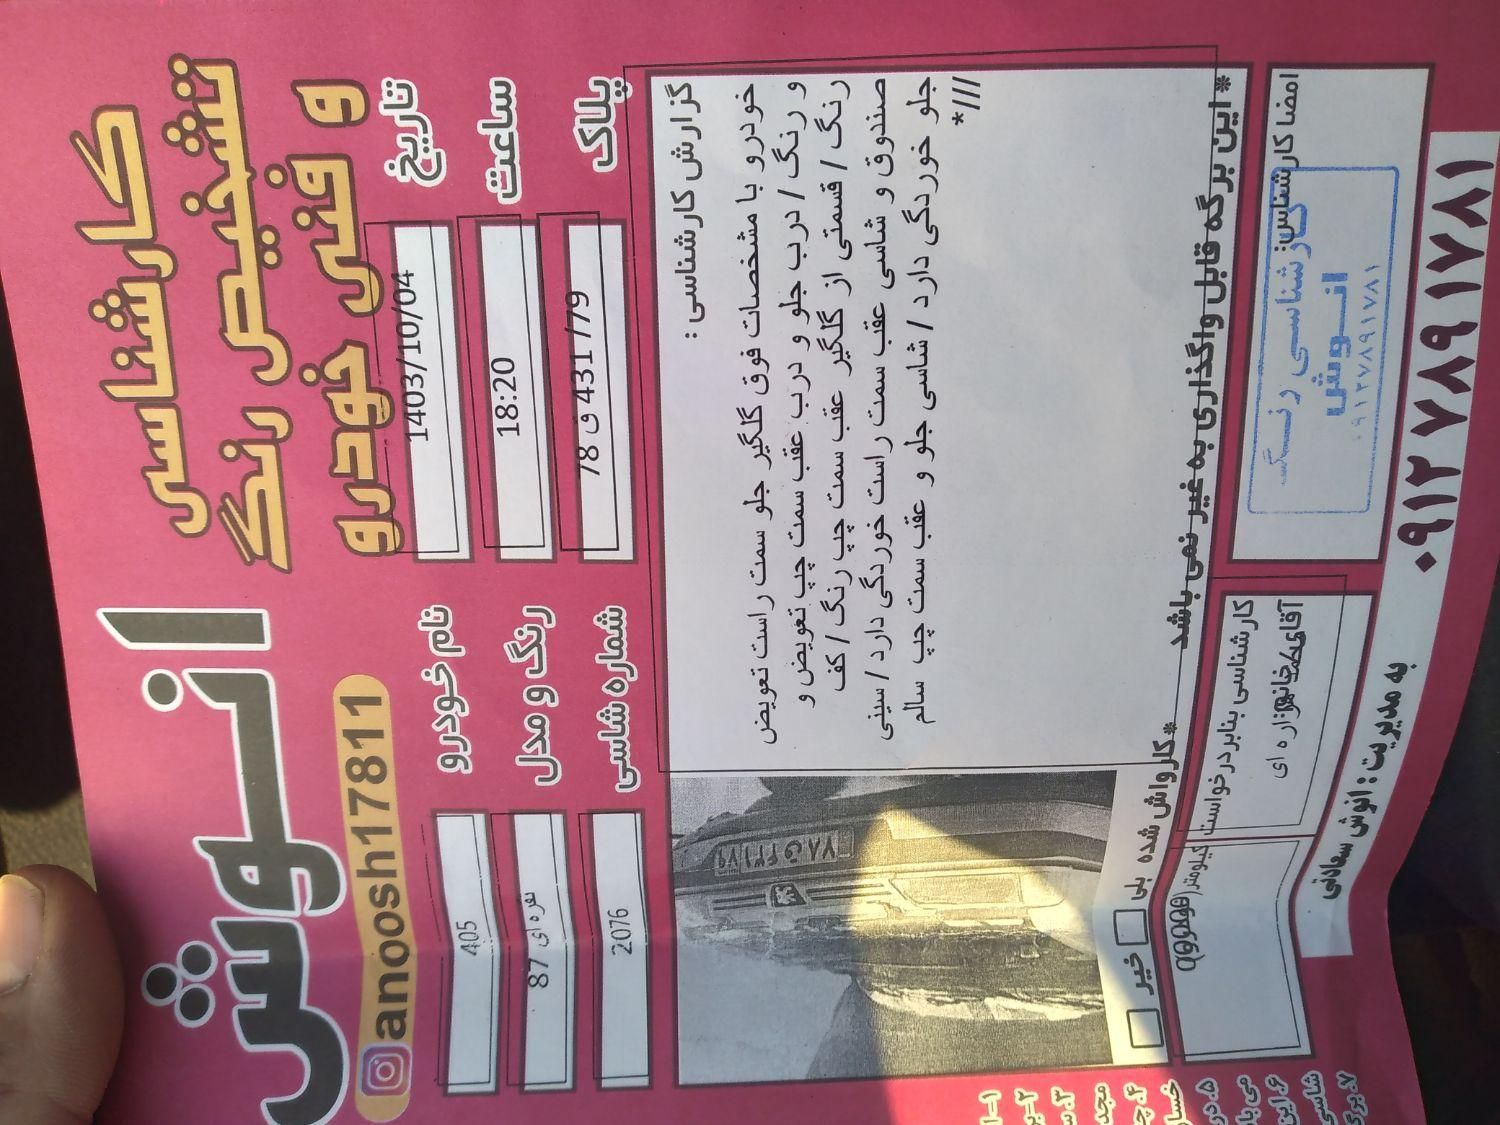 انوش
کارشناسی
تشخیص رنگ
و فنی خودرو
anoosh17811
نام خودرو
405
تاریخ
1403/10/04
رنگ و مدل
نقره ای 87
ساعت
18:20
شماره شاسی
2076
پلاک
78 ق 431 /79
گزارش کارشناسی :
خودرو با مشخصات فوق گلگیر جلو سمت راست تعویض
و رنگ / درب جلو و درب عقب سمت چپ تعویض و
رنگ / قسمتی از گلگیر عقب سمت چپ رنگ / کف
صندوق و شاسی عقب سمت راست خوردگی دارد / سینی
جلو خوردگی دارد / شاسی جلو و عقب سمت چپ سالم
///*
۷۸ ق ۴۳۱ ۷۹
*کارواش شده بلی خیر
* این برگه قابل واگذاری به غیر نمی باشد
کیلومتر
کارشناسی بنابر درخواست
آقای
امضا کارشناس:
کارشناسی رنگ
انوش
۰۹۱۲۷۸۹۱۷۸۱
به مدیریت : انوش سعادتی
۰۹۱۲ ۷۸۹ ۱۷۸۱